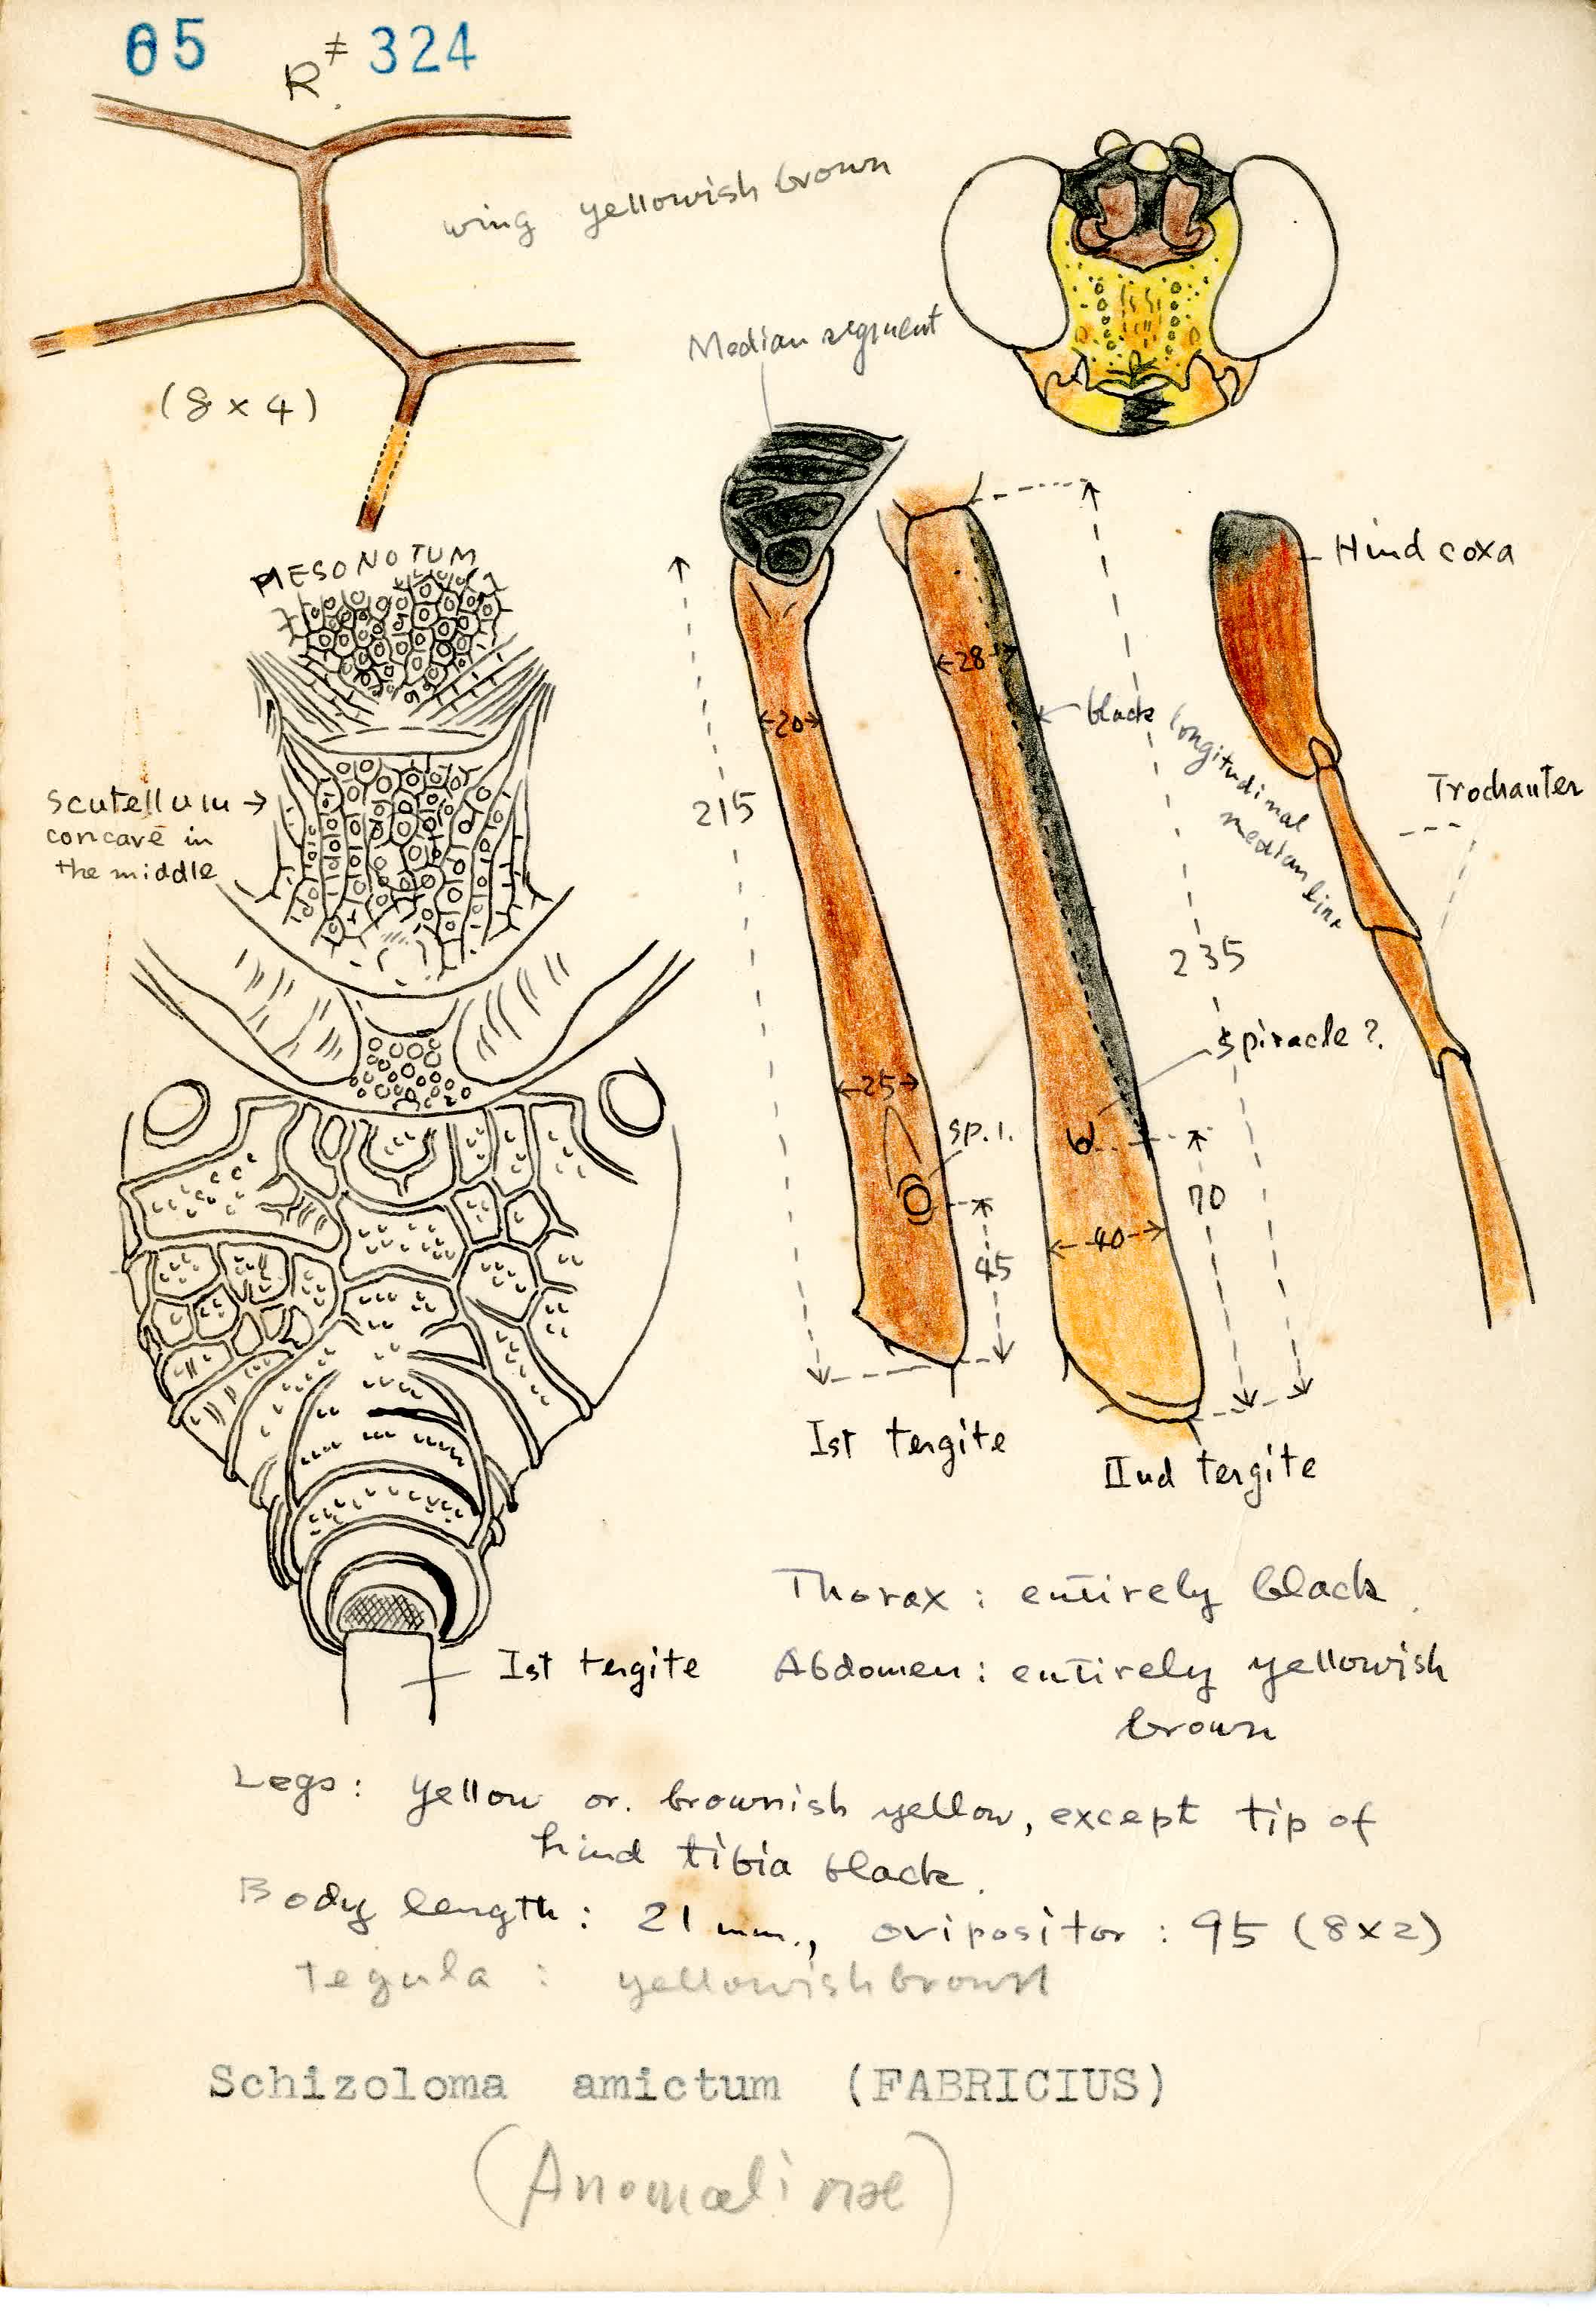 65 R.# 324
wing yellowish brown
(8 x 4)
Median segment
MESONOTUM
Hind coxa
28
20
black longitudinal
median line
215
Trochanter
scutellum →
concave in
the middle
235
spiracle ?
25
sp. 1.
70
40
45
Ist tergite
IInd tergite
Thorax : entirely black.
Ist tergite
Abdomen : entirely yellowish
brown
Legs : yellow or. brownish yellow, except tip of
hind tibia black.
Body length : 21 mm., ovipositor : 95 (8x2)
tegula : yellowish brown
Schizoloma amictum (FABRICIUS)
(Anomalinae)